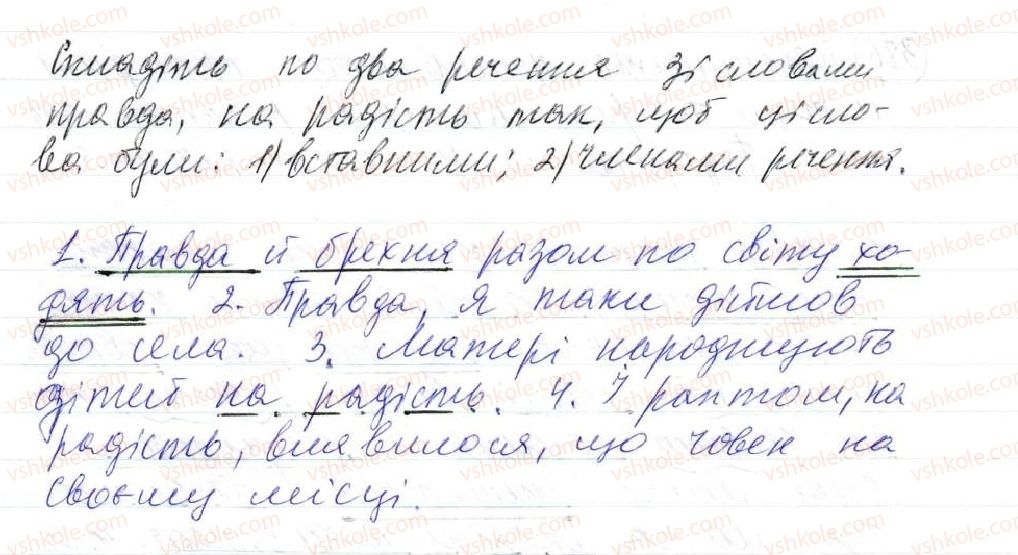 Складіть по два речення зі словами
правда, на радість так, щоб ці сло-
ва були: 1) вставними; 2) членами речення.
1. Правда й брехня разом по світу хо-
дять. 2. Правда, я таки дійшов
до села. 3. Матері народжують
дітей на радість. 4. І раптом, на
радість, виявилося, що човен на
своєму місці.